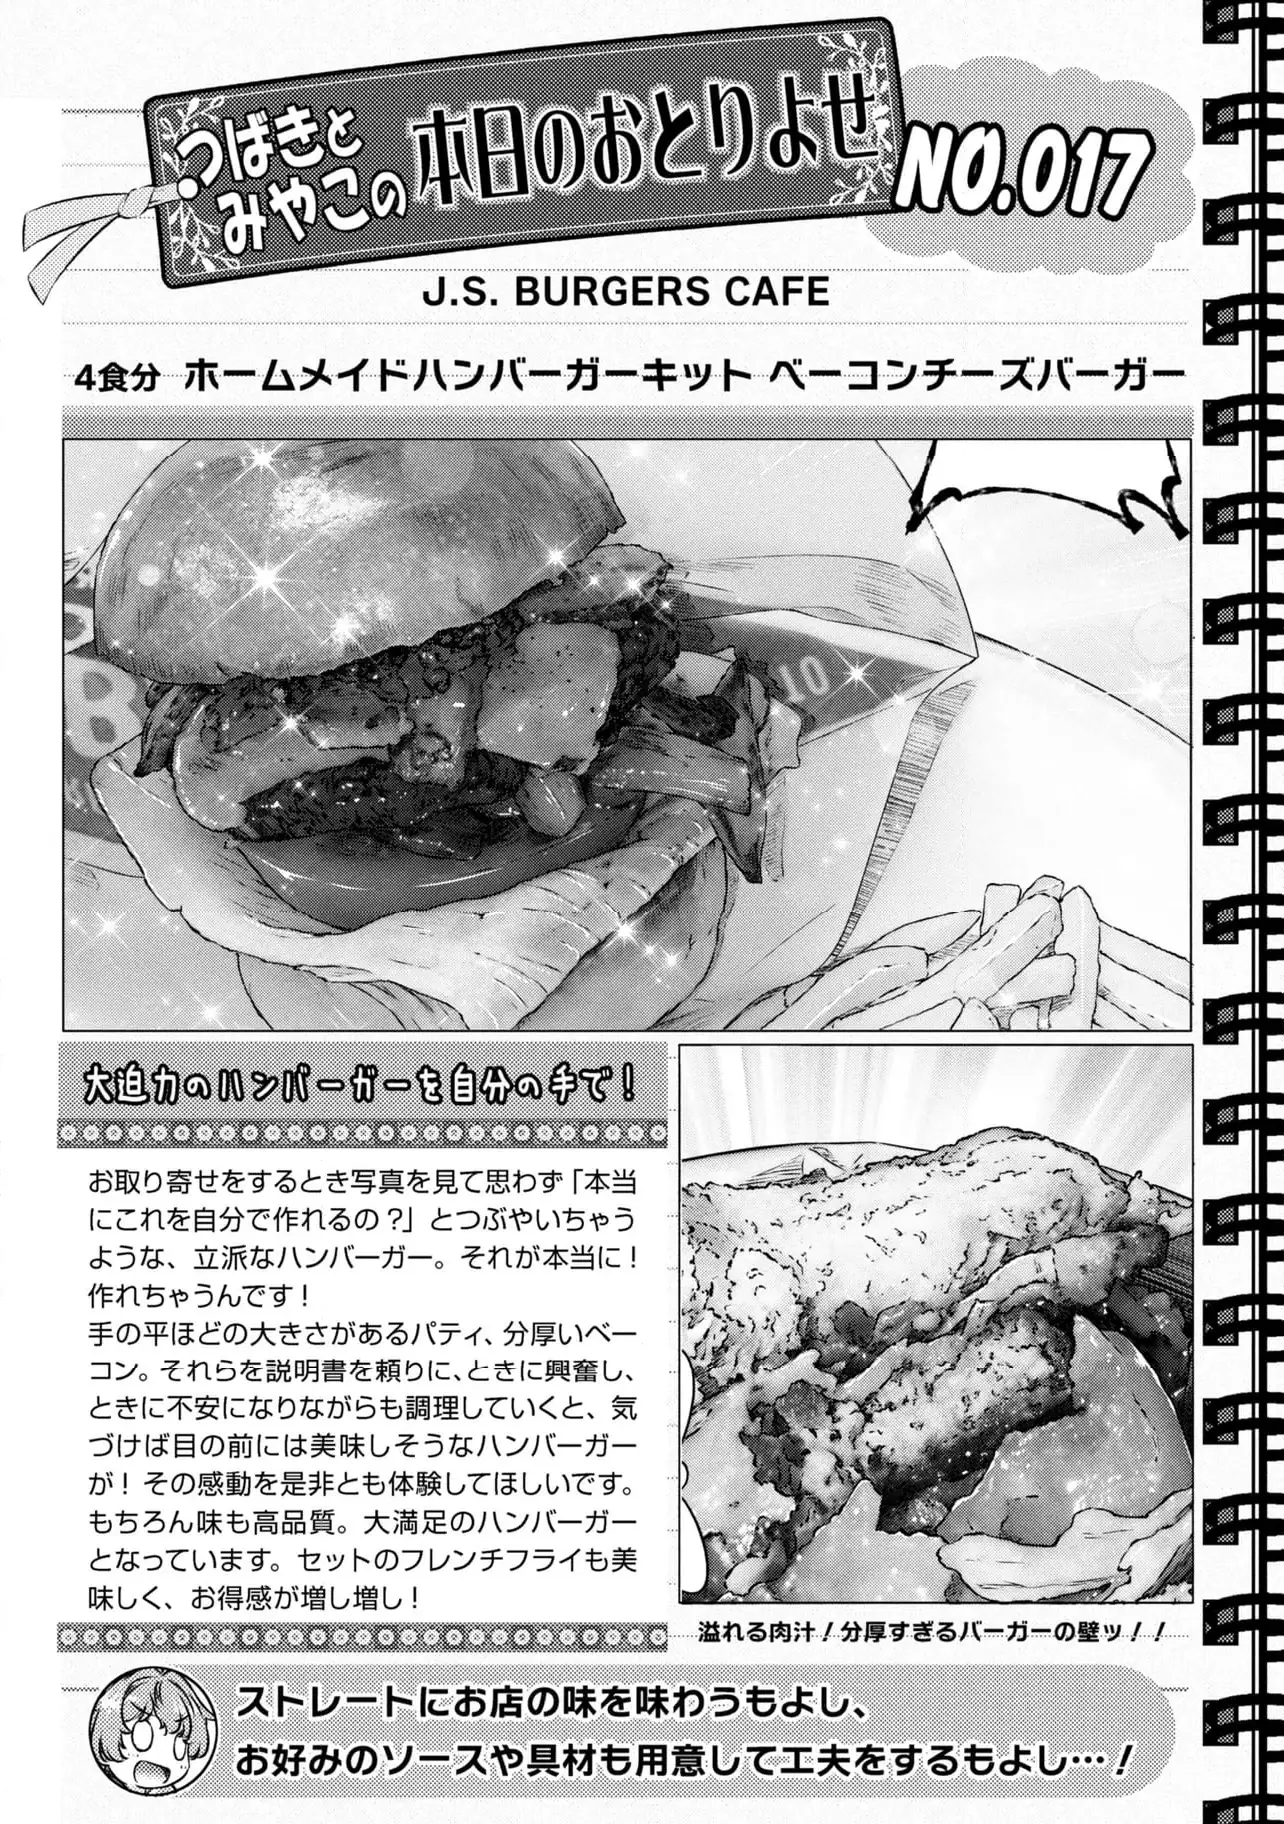 つばきと
みやこの
本日のおとりよせ
NO.017
J.S. BURGERS CAFE
4食分 ホームメイドハンバーガーキット ベーコンチーズバーガー
8
10
大迫力のハンバーガーを自分の手で！
お取り寄せをするとき写真を見て思わず「本当
にこれを自分で作れるの？」とつぶやいちゃう
ような、立派なハンバーガー。それが本当に！
作れちゃうんです！
手の平ほどの大きさがあるパティ、分厚いベー
コン。それらを説明書を頼りに、ときに興奮し、
ときに不安になりながらも調理していくと、気
づけば目の前には美味しそうなハンバーガー
が！その感動を是非とも体験してほしいです。
もちろん味も高品質。大満足のハンバーガー
となっています。セットのフレンチフライも美
味しく、お得感が増し増し！
溢れる肉汁！分厚すぎるバーガーの壁ッ！！
ストレートにお店の味を味わうもよし、
お好みのソースや具材も用意して工夫をするもよし…！